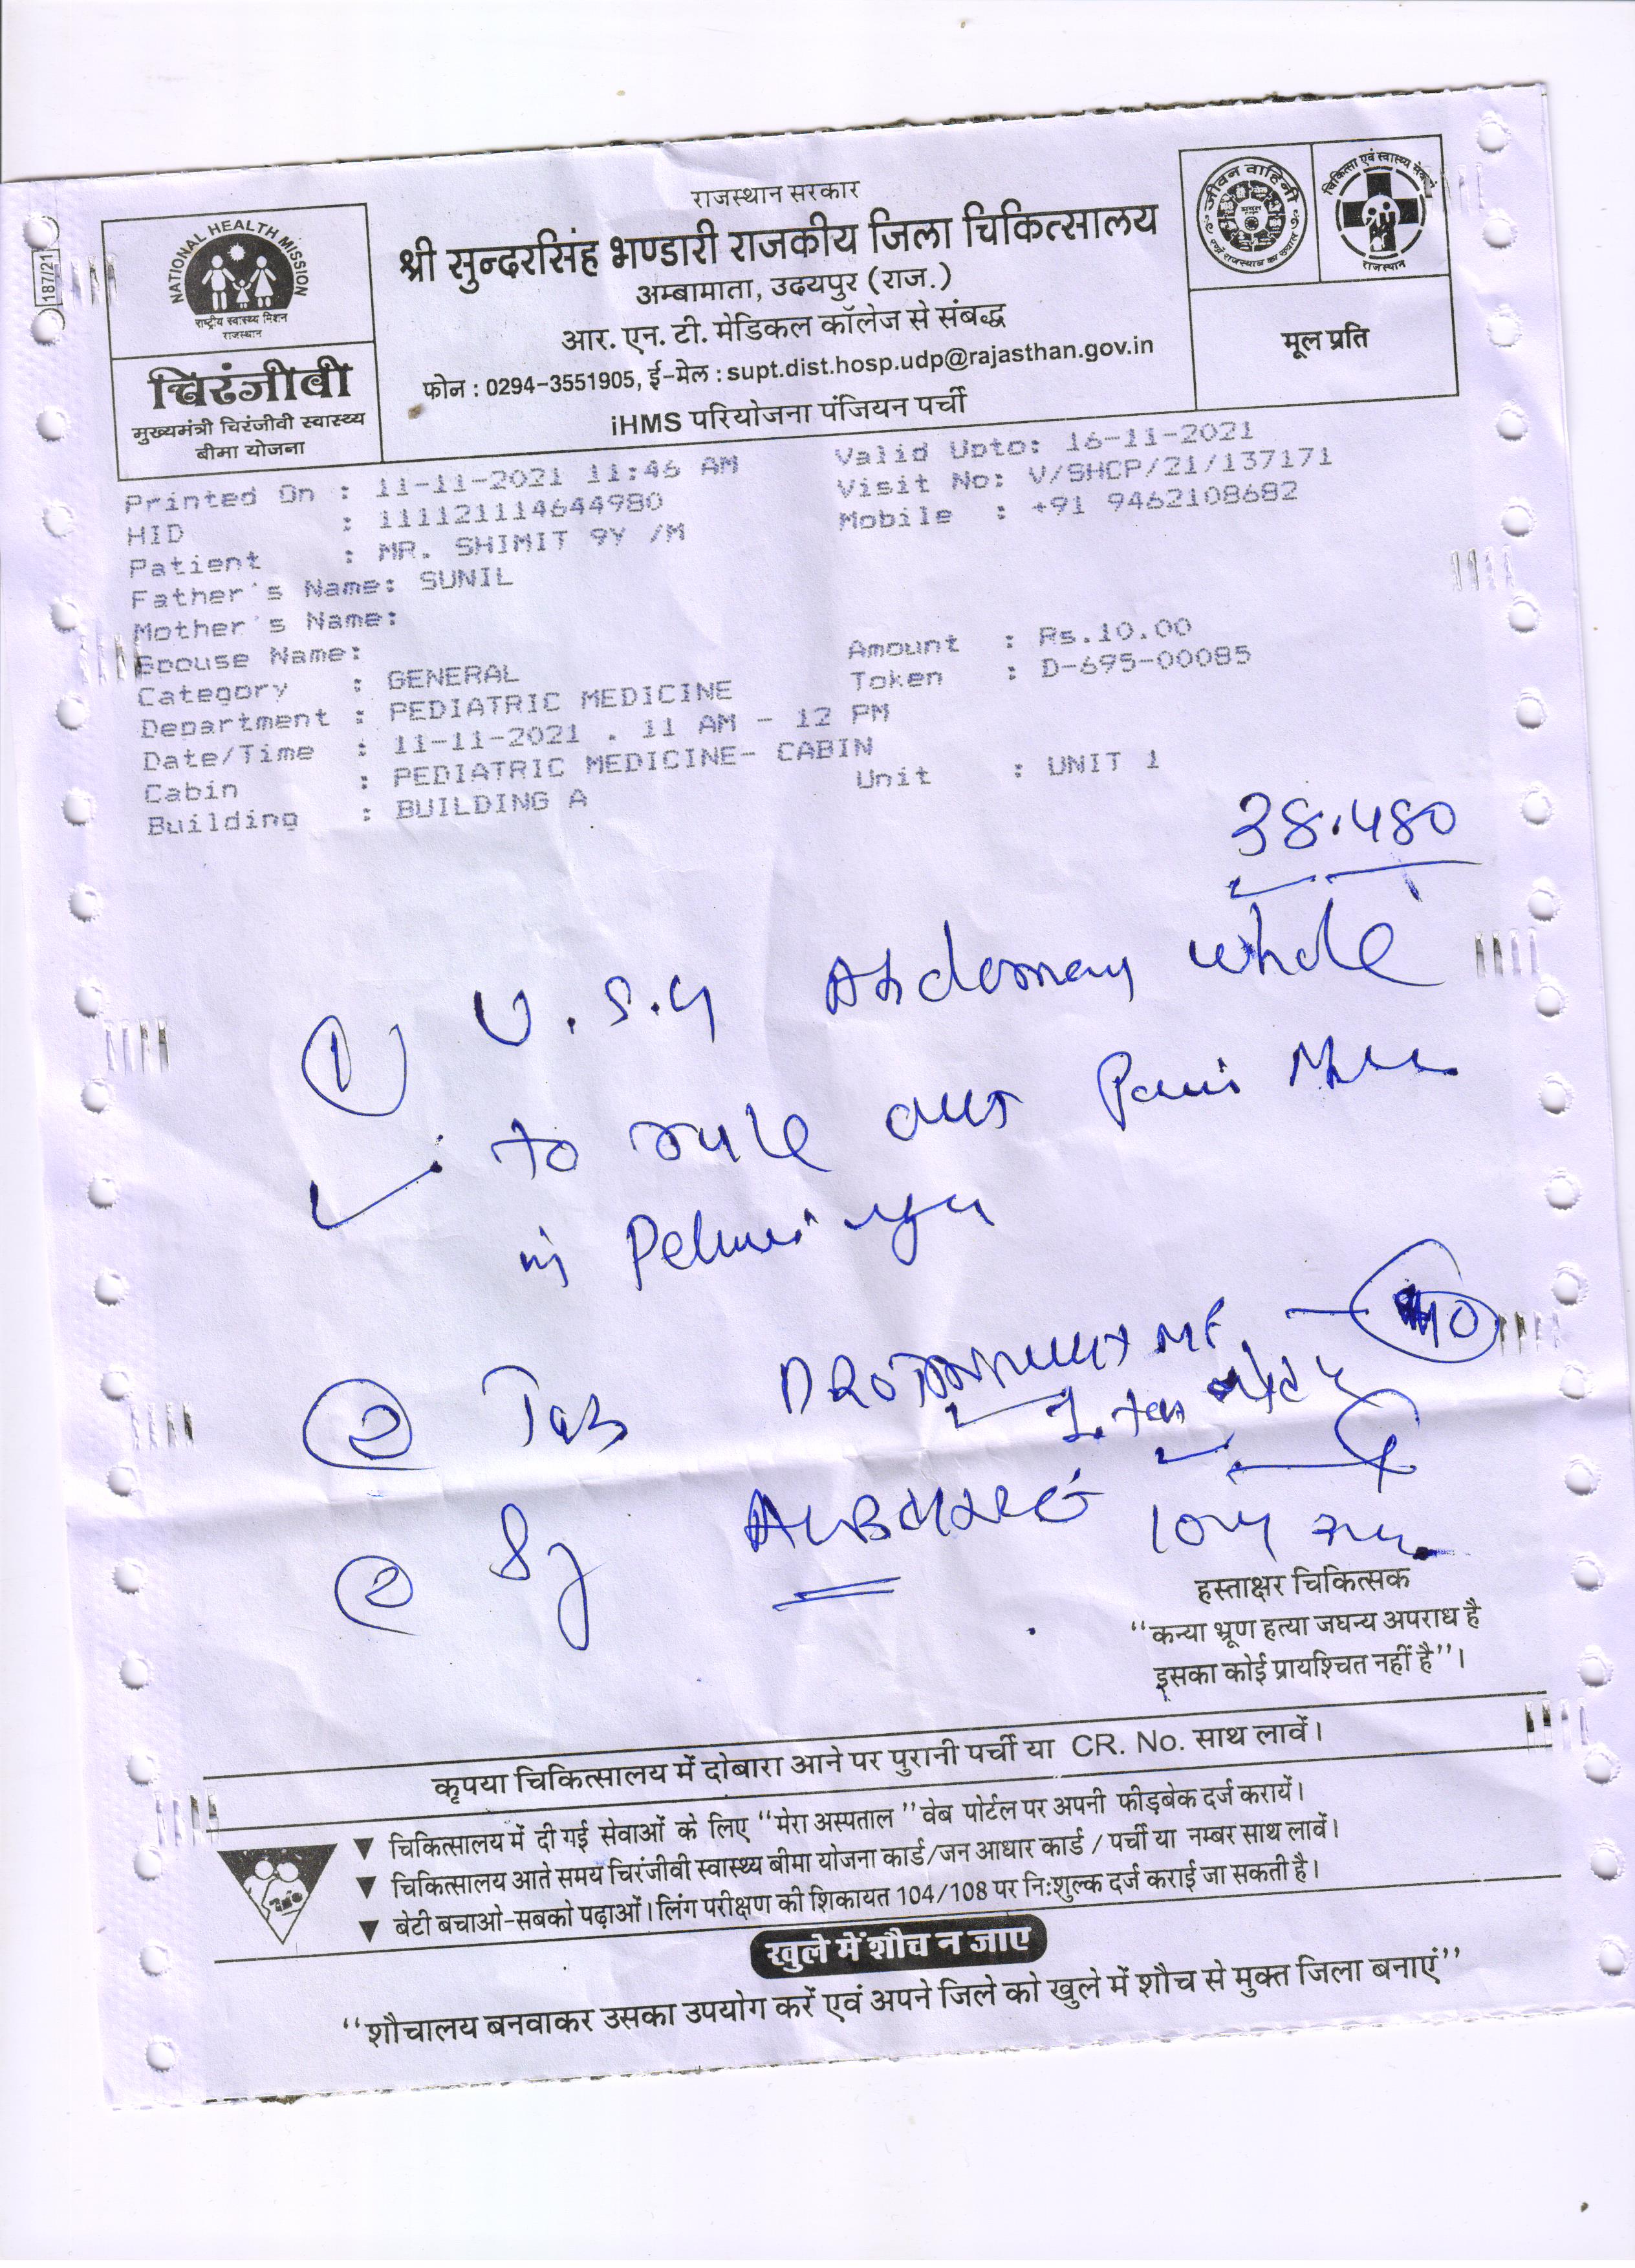 187/21
NATIONAL HEALTH MISSION
राष्ट्रीय स्वास्थ्य मिशन
राजस्थान
चिरंजीवी
मुख्यमंत्री चिरंजीवी स्वास्थ्य
बीमा योजना
राजस्थान सरकार
श्री सुन्दरसिंह भण्डारी राजकीय जिला चिकित्सालय
अम्बामाता, उदयपुर (राज.)
आर. एन. टी. मेडिकल कॉलेज से संबद्ध
फोन : 0294-3551905, ई-मेल : supt.dist.hosp.udp@rajasthan.gov.in
iHMS परियोजना पंजियन पर्ची
जीवन वाहिनी
राजस्थान
मूल प्रति
Printed On : 11-11-2021 11:46 AM Valid Upto: 16-11-2021
HID : 111121114644980 Visit No: V/SHCP/21/137171
Patient : MR. SHIMIT 9Y /M Mobile : +91 9462108682
Father's Name: SUNIL
Mother's Name:
Spouse Name:
Category : GENERAL Amount : Rs.10.00
Department : PEDIATRIC MEDICINE Token : D-695-00085
Date/Time : 11-11-2021 . 11 AM - 12 PM
Cabin : PEDIATRIC MEDICINE- CABIN
Building : BUILDING A Unit : UNIT 1
38.480
① U.S.G Abdomen whole
to rule out
in
② Tab
② Sy
हस्ताक्षर चिकित्सक
“कन्या भ्रूण हत्या जघन्य अपराध है
इसका कोई प्रायश्चित नहीं है”।
कृपया चिकित्सालय में दोबारा आने पर पुरानी पर्ची या CR. No. साथ लावें।
▼ चिकित्सालय में दी गई सेवाओं के लिए “मेरा अस्पताल” वेब पोर्टल पर अपनी फीड़बेक दर्ज करायें।
▼ चिकित्सालय आते समय चिरंजीवी स्वास्थ्य बीमा योजना कार्ड/जन आधार कार्ड / पर्ची या नम्बर साथ लावें।
▼ बेटी बचाओ-सबको पढ़ाओं। लिंग परीक्षण की शिकायत 104/108 पर निःशुल्क दर्ज कराई जा सकती है।
खुले में शौच न जाए
“शौचालय बनवाकर उसका उपयोग करें एवं अपने जिले को खुले में शौच से मुक्त जिला बनाएं”